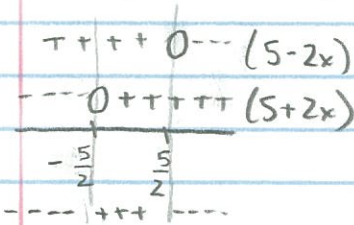 + + + + 0 - - - (5-2x)
- - - - 0 + + + + + (5+2x)
- 5/2 5/2
- - - - + + + - - - -